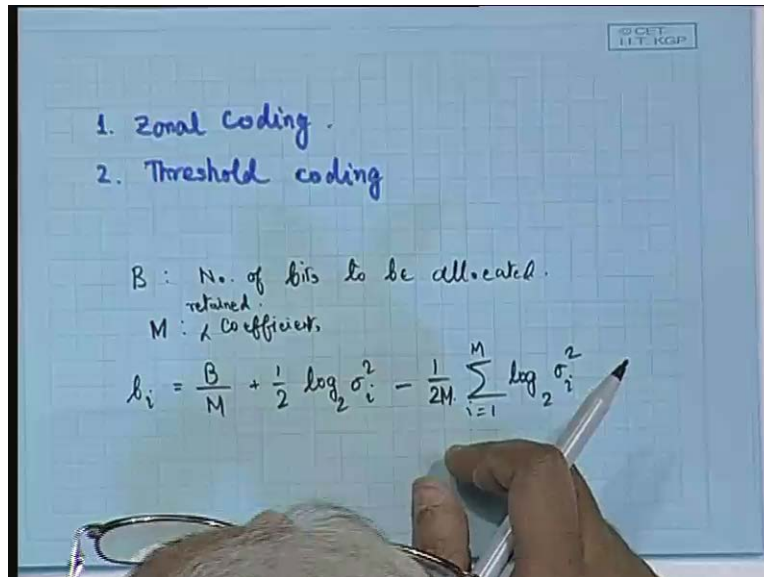 © CET
I.I.T. KGP
1. Zonal Coding.
2. Threshold coding
B : No. of bits to be allocated.
retained.
M : Coefficients
b_i = B/M + 1/2 log_2 σ_i^2 - 1/2M. Σ_{i=1}^{M} log_2 σ_i^2